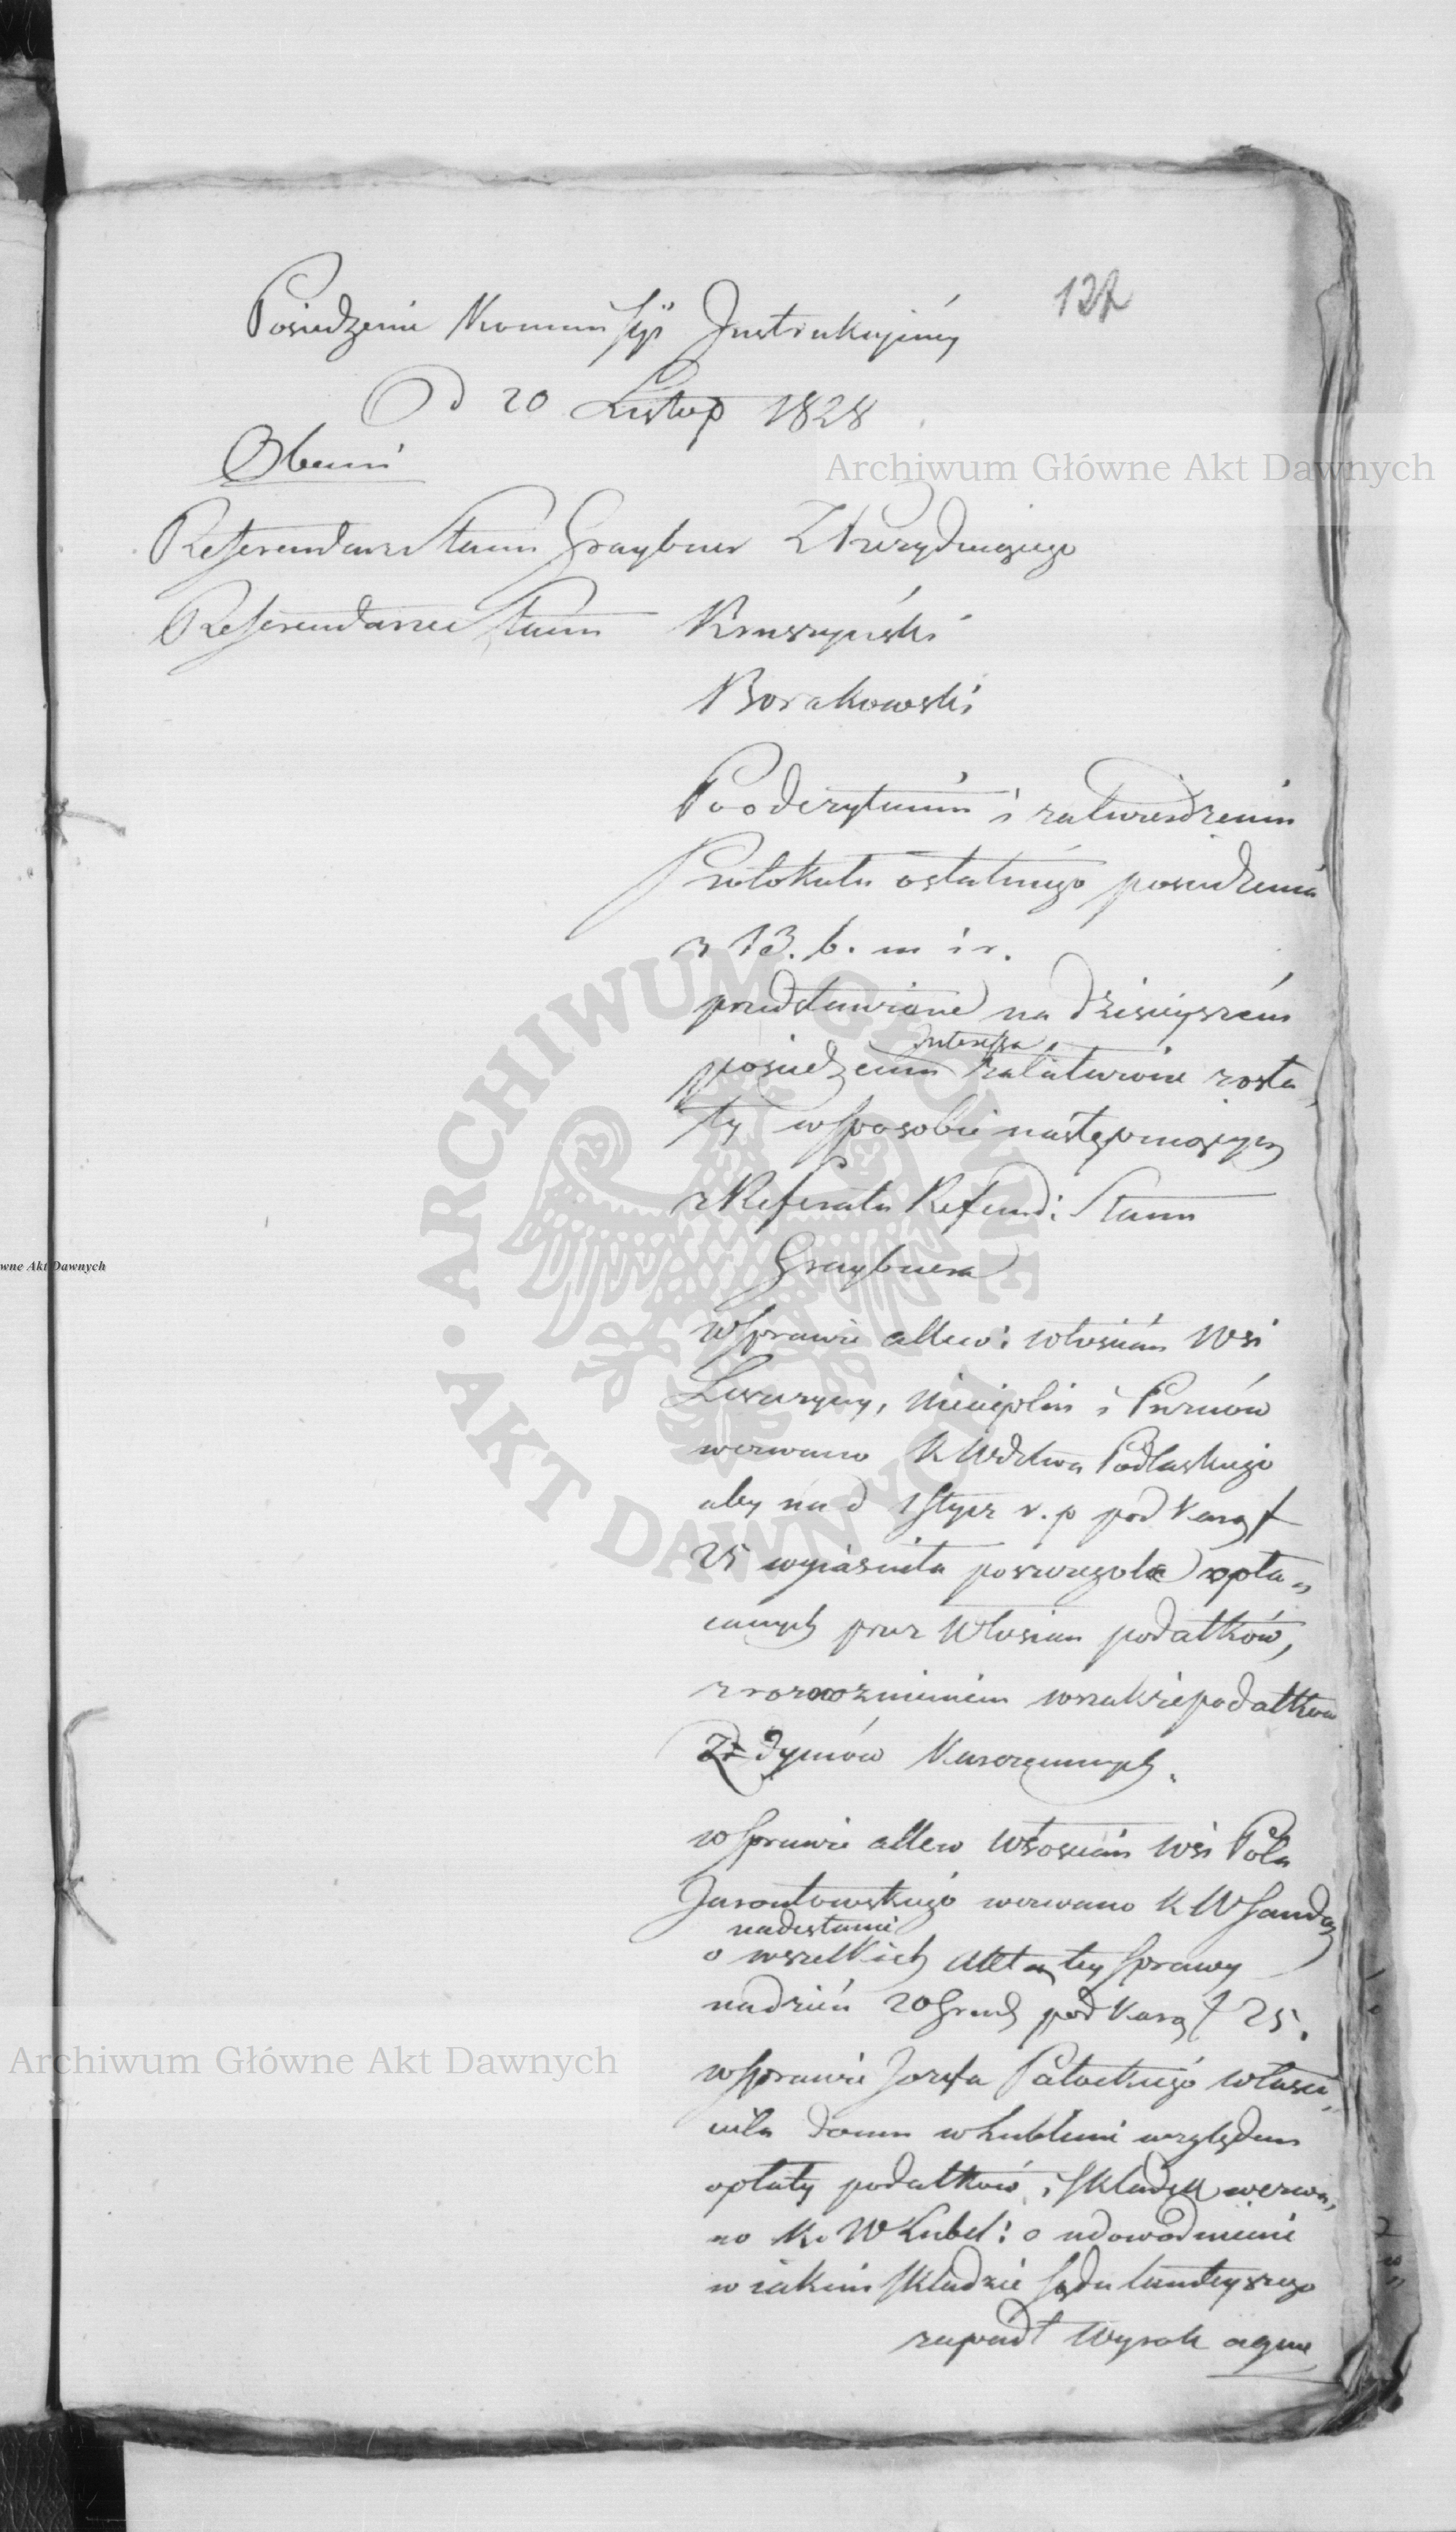 137
Posiedzenie Kommissyi Instrukcyiney
D 20 Listop 1828
Obecni
Referendarz Stanu Graybner Prezyduiący
Referendarze Stanu Kruszyński
Borakowski
Po odczytaniu i zatwierdzeniu
Protokułu ostatniego posiedzenia
z 13. b. m i r.
przedstawione na dzisieyszém
posiedzeniu Interessa załatwione zosta„
ły w sposobie następuiącym
z Referatu Referend: Stanu
Graybnera
w Sprawie allew: włościan Wsi
i
wezwano K Wdztwa Podlaskiego
aby na d 1 Stycz r. p pod karą f
25 wyiaśniła poszczególe opła„
canych przez Włościan podatków,
z wszakże podatków
Z dymów karczemnych.
w Sprawie allew Włościan Wsi Pola
Jarontowskiego wezwano K W Sando
o nadesłanie wszelkich akt tey Sprawy
na dzień 20 Grud pod karą f 25.
w Sprawie Jozefa Pałuckiego właści„
ciela domu w Lublinie względem
opłaty podatków i składek wezwa„
no K. W Lubel: o udowodnienie
w iakim składzie Sądu tamteyszego
zapadł Wyrok
Archiwum Główne Akt Dawnych
ARCHIWUM GŁÓWNE AKT DAWNYCH
wne Akt Dawnych
Archiwum Główne Akt Dawnych